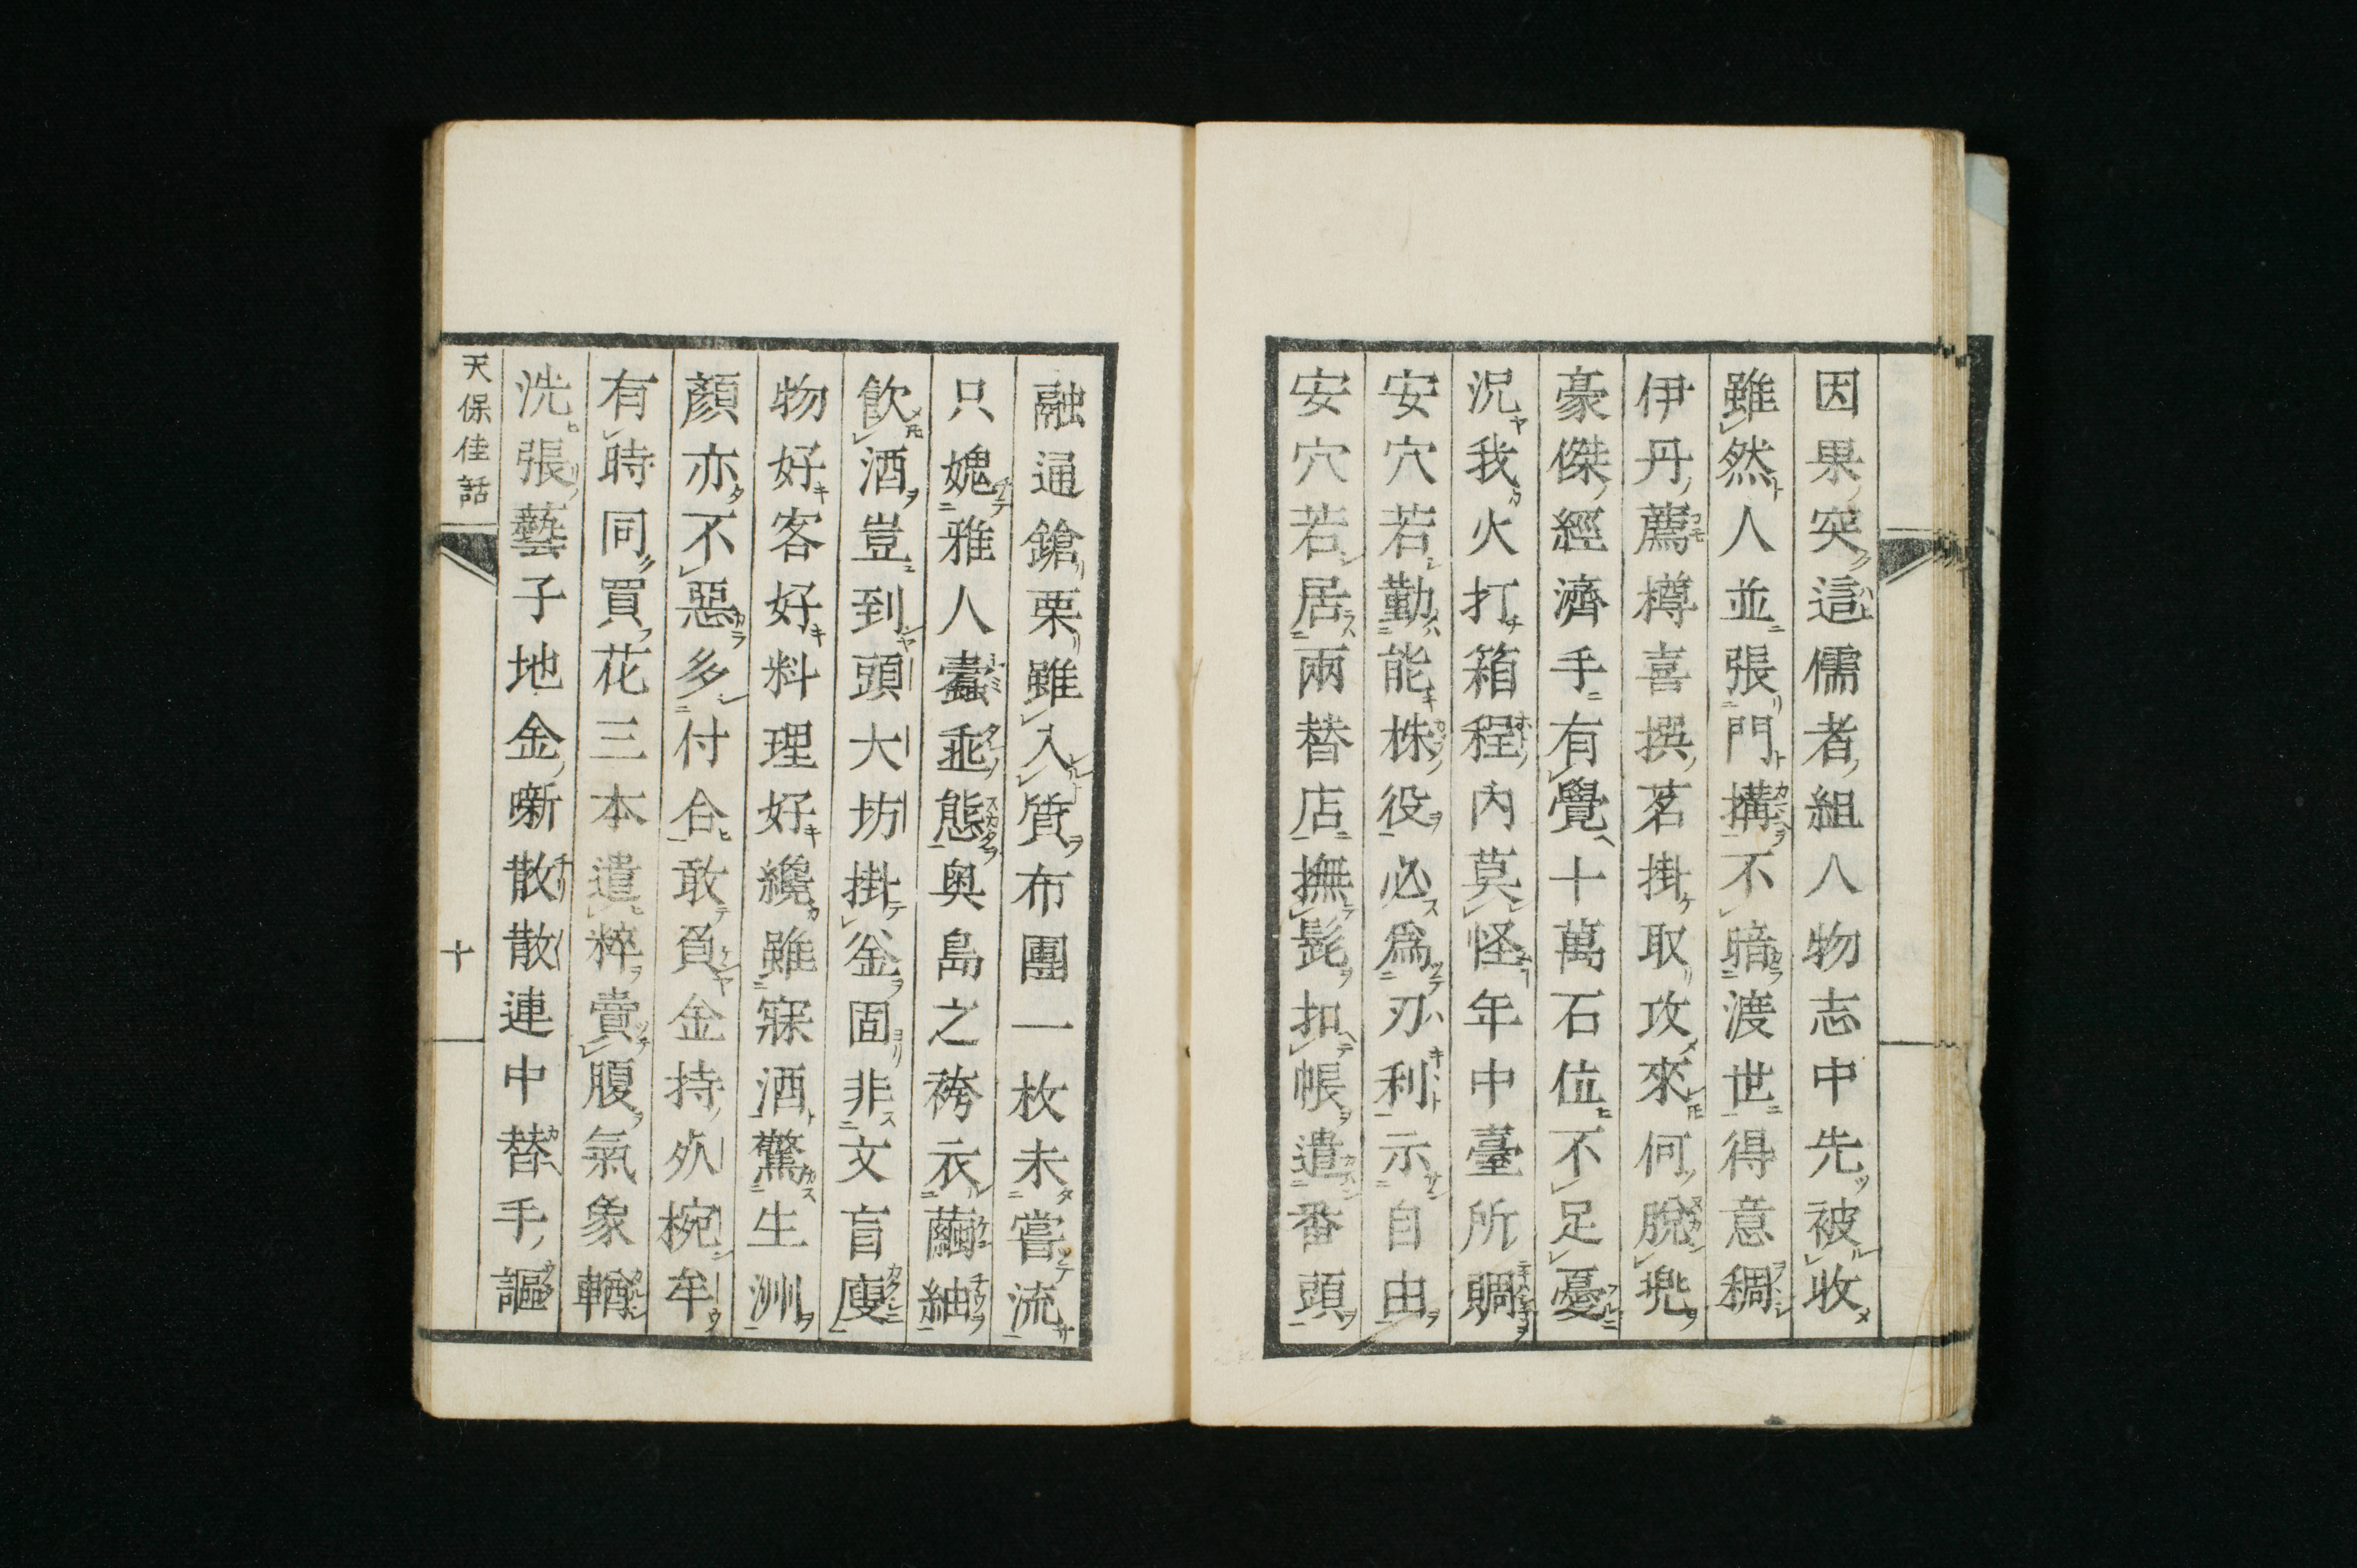 因果突這儒者組人物志中先被收
雖然人並張門搆不暗渡世得意稠
伊丹薦樽喜撰茗掛取攻來何脫兜
豪傑經濟手有覺十萬石位不足憂
況我火打箱程內莫怪年中臺所賙
安穴若勤能株役必爲刃利示自由
安穴若居兩替店撫髭扣帳遣番頭
融通鎗栗雖入質布團一枚未嘗流
只媿雅人蠹乖態奥島之袴衣繭紬
飮酒豈到頭大坊掛釡固非文盲廋
物好客好料理好纔雖寐酒驚生洲
顏亦不惡多付合敢負金持夯椀牟
有時同買花三本遣粹賣腹氣象輶
洗張藝子地金噺散散連中替手謳
天保佳話
十